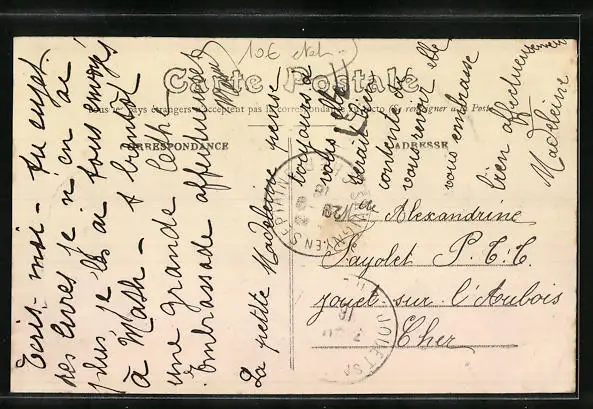 10€ net
Carte Postale
Tous les pays étrangers n'acceptent pas la correspondance au recto (Se renseigner à la Poste)
CORRESPONDANCE
ADRESSE
Ecris-moi - au sujet
des livres je n'en ai
plus je les ai tous envoyés
à Math - à bientôt
une grande lettre
Embrassade affectueuses
La petite Madeleine pense
toujours à
vous elle
serait bien
contente de
vous revoir elle
vous embrasse
bien affectueusement
Madeleine
Alexandrine
Fayolet P. T. T.
Jouet-sur-l'Aubois
Cher
JOUET S